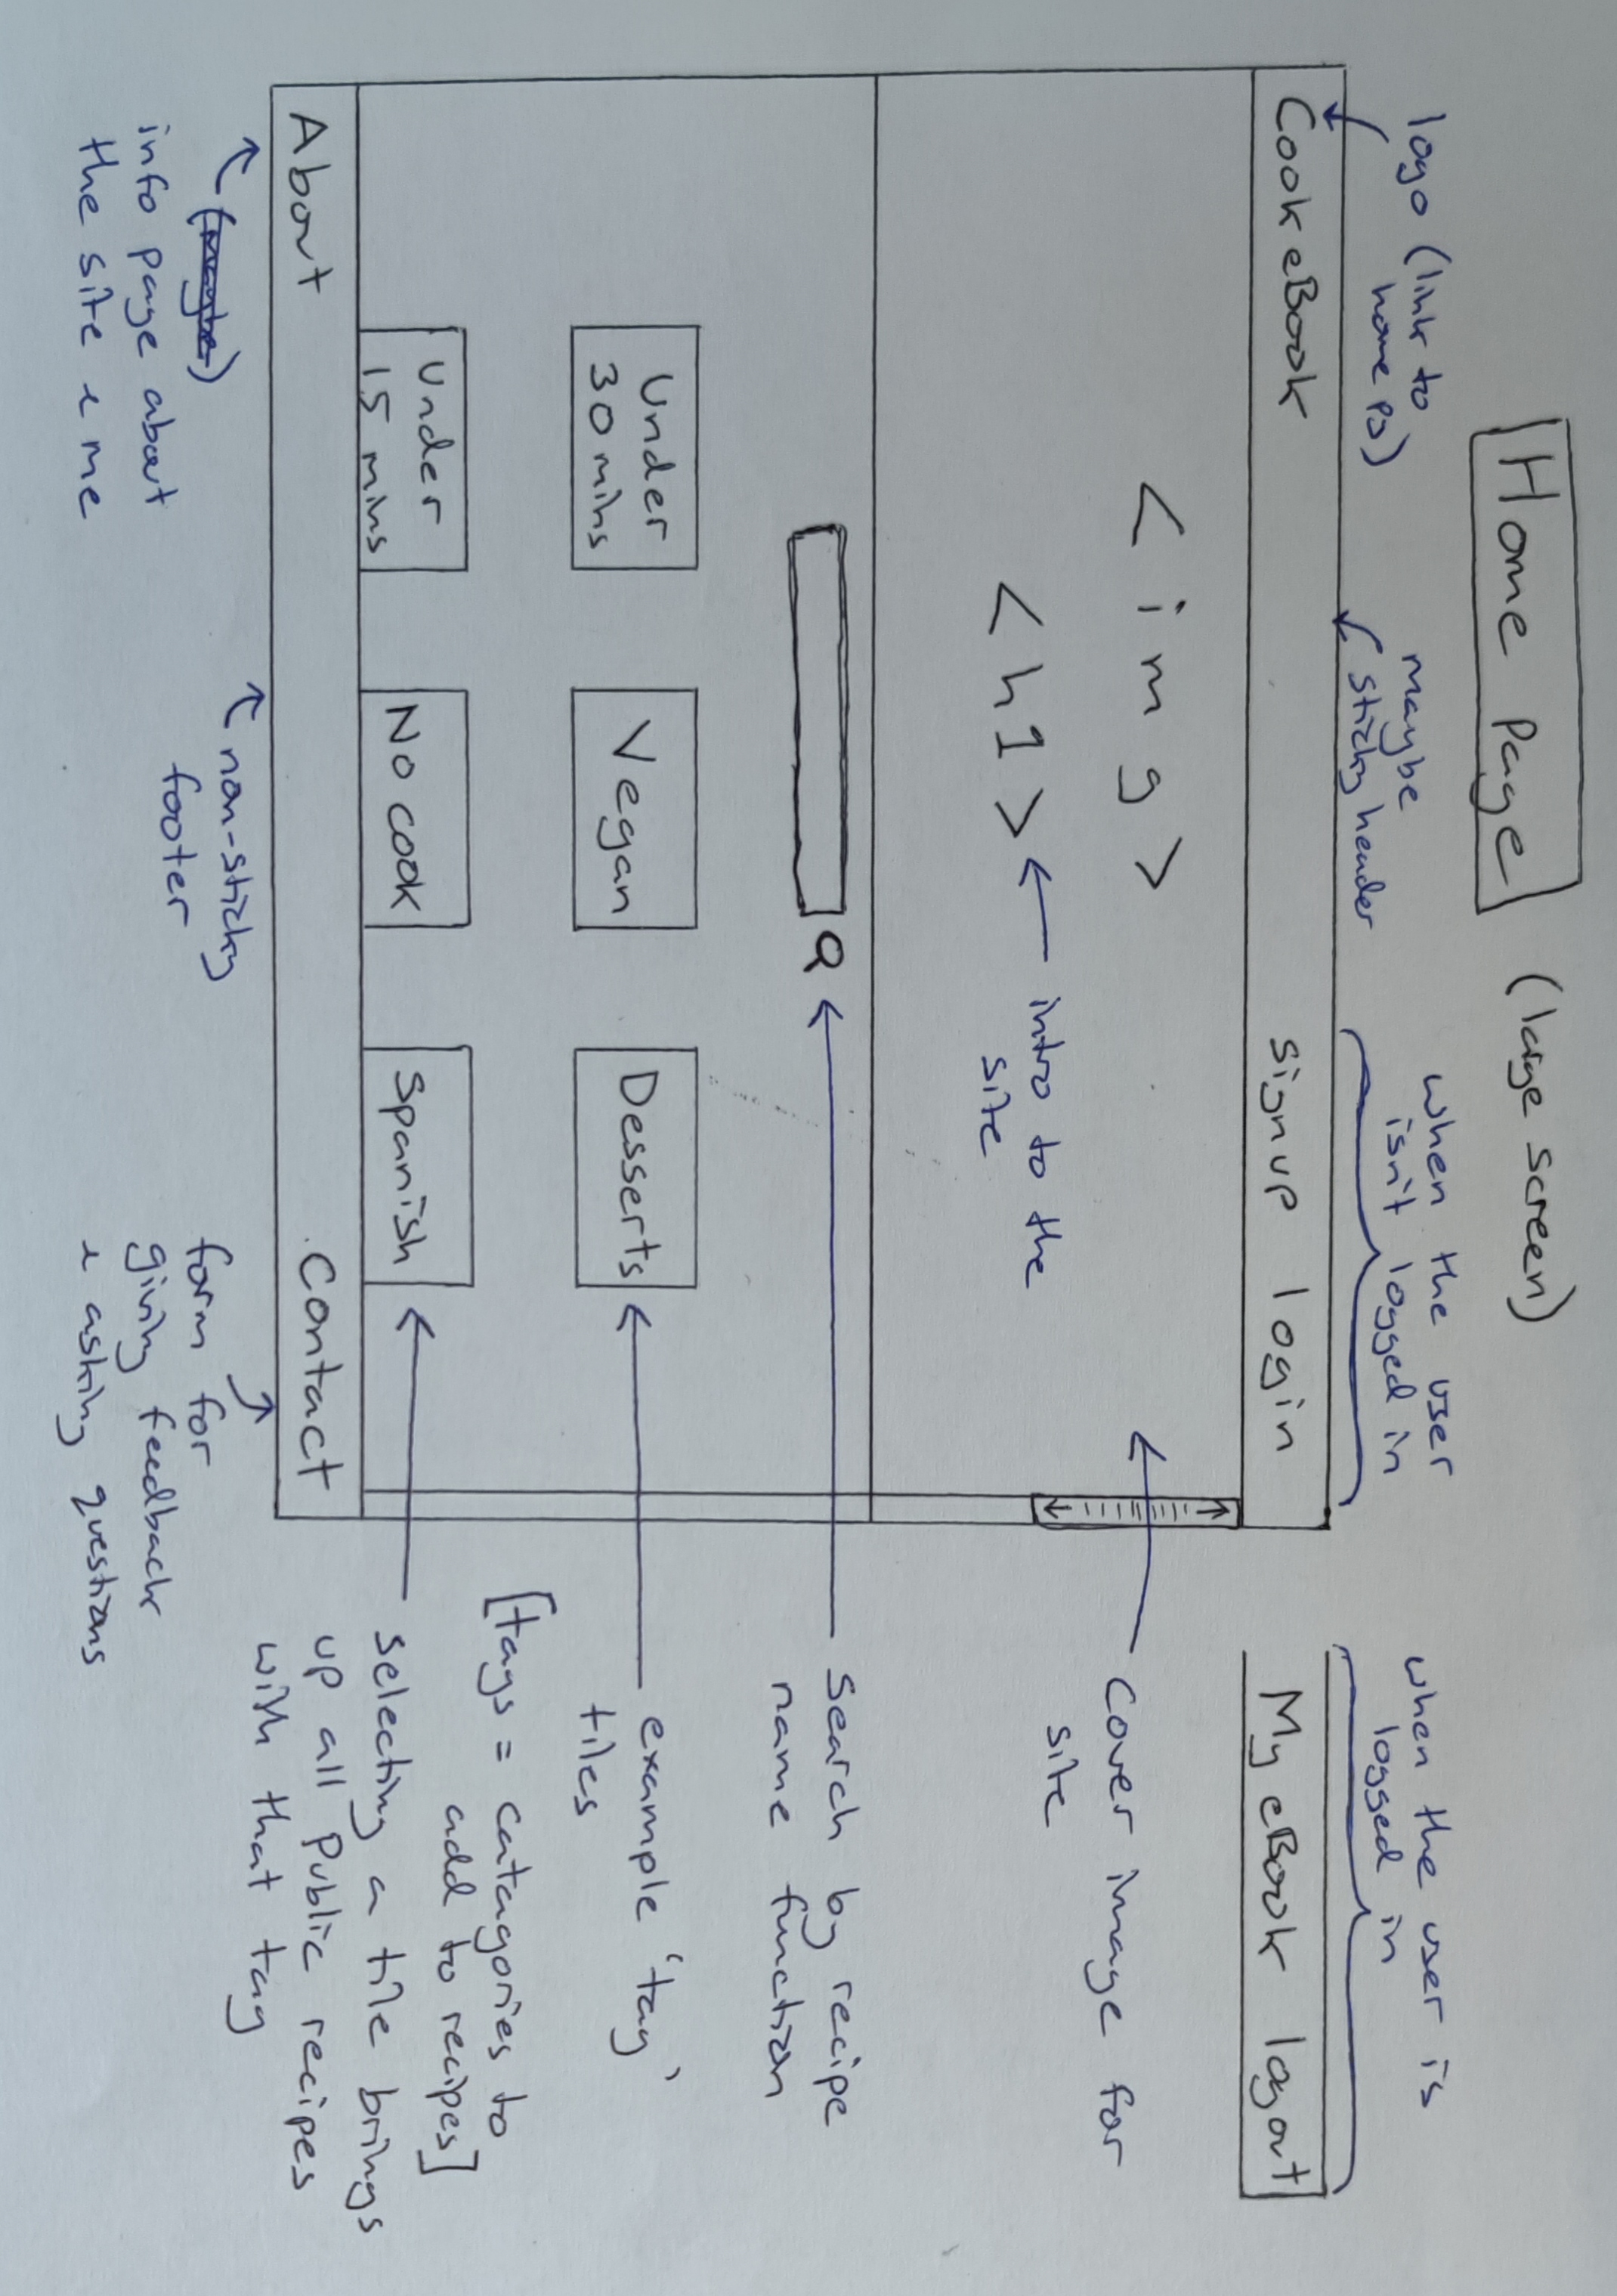 Home Page (large screen)
logo (link to
home pg)
maybe
sticky header
when the user
isn't logged in
when the user is
logged in
Cook eBook
signup login
My eBook logout
<img>
cover image for
site
<h1>
intro to the
site
search by recipe
name function
Under
30 mins
Vegan
Desserts
example 'tag'
tiles
[tags = catagories to
add to recipes]
Under
15 mins
No cook
Spanish
selecting a tile brings
up all Public recipes
with that tag
About
Contact
(maybe)
info page about
the site & me
non-sticky
footer
form for
giving feedback
& asking questions